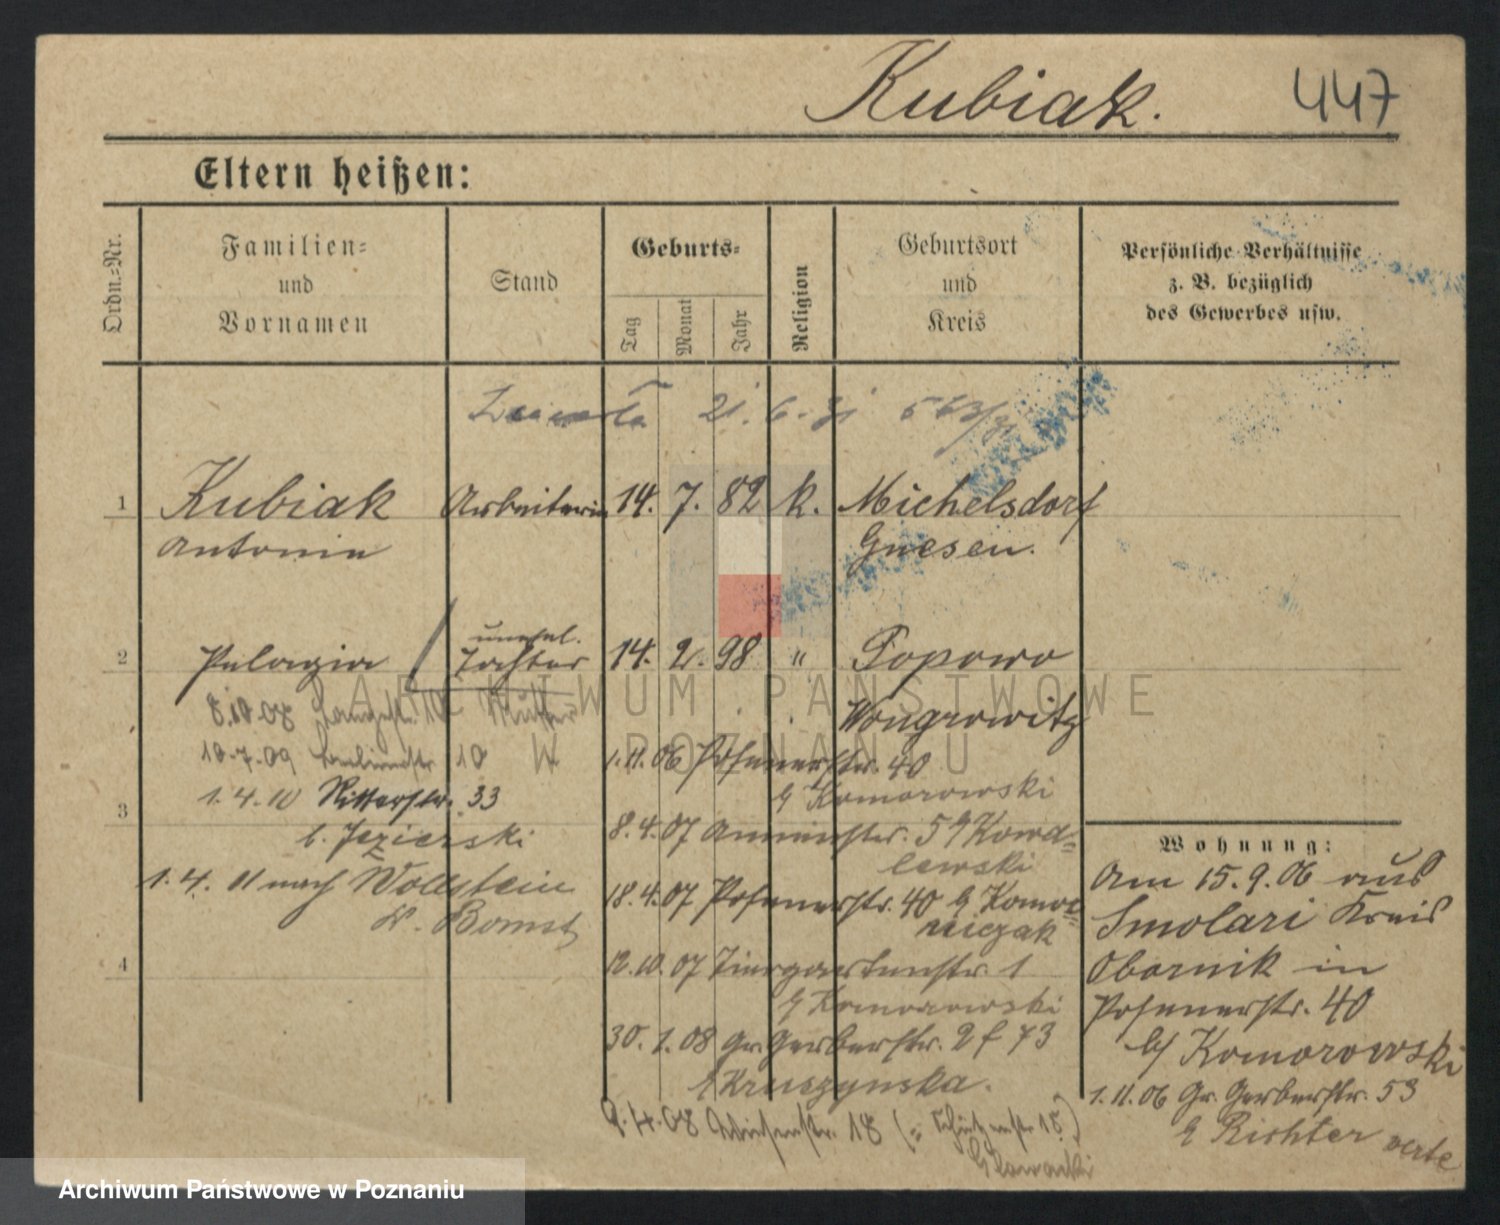 Kubiak.
447
Eltern heißen:
Ordn.=Nr.
Familien=
und
Vornamen
Stand
Geburts=
Tag
Monat
Jahr
Religion
Geburtsort
und
Kreis
Persönliche Verhältnisse
z. B. bezüglich
des Gewerbes usw.
21. 6.
1
Kubiak Arbeiterin 14. 7. 82 k. Michelsdorf
Antonie Gnesen.
unehel.
2
Pelagia Tochter 14. 2. 98 " Popowo
Mutter
Wongrowitz
8.10.08 Langestr. 10
10.7.09 10
1.4.10 Ritterstr. 33
b. Jezierski
1.4.11 nach Wollstein
Kr. Bomst
3
4
1.11.06 Posenerstr. 40
b/ Komorowski
8.4.07 5 b/ Kowa=
lewski
18.4.07 Posenerstr. 40 b/ Komor=
niczak
12.10.07 Tiergartenstr. 1
b/ Komorowski
30.1.08 Gr. Gerberstr. 2 f 73
b/ Kruszynska.
9.4.08 Wiesenstr. 18 (= Schützenstr 18)
Wohnung:
Am 15.9.06 aus
Smolari Kreis
Obornik in
Posenerstr. 40
b/ Komorowski
1.11.06 Gr. Gerberstr. 53
b/ Richter verte
ARCHIWUM PAŃSTWOWE
W POZNANIU
Archiwum Państwowe w Poznaniu